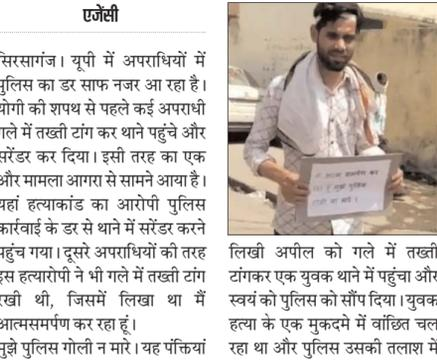 एजेंसी
सिरसागंज। यूपी में अपराधियों में
पुलिस का डर साफ नजर आ रहा है।
योगी की शपथ से पहले कई अपराधी
गले में तख्ती टांग कर थाने पहुंचे और
सरेंडर कर दिया। इसी तरह का एक
और मामला आगरा से सामने आया है।
यहां हत्याकांड का आरोपी पुलिस
कार्रवाई के डर से थाने में सरेंडर करने
पहुंच गया। दूसरे अपराधियों की तरह
इस हत्यारोपी ने भी गले में तख्ती टांग
रखी थी, जिसमें लिखा था मैं
आत्मसमर्पण कर रहा हूं।
मुझे पुलिस गोली न मारे। यह पंक्तियां
मैं आत्म समर्पण कर
रहा हूं मुझे पुलिस
गोली ना मारे।
लिखी अपील को गले में तख्ती
टांगकर एक युवक थाने में पहुंचा और
स्वयं को पुलिस को सौंप दिया। युवक
हत्या के एक मुकदमे में वांछित चल
रहा था और पुलिस उसकी तलाश में